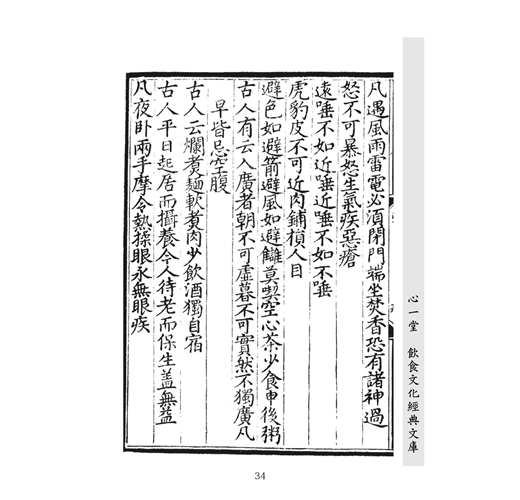 凡遇風雨雷電必須閉門端坐焚香恐有諸神過
怒不可暴怒生氣疾惡瘡
遠唾不如近唾近唾不如不唾
虎豹皮不可近肉鋪損人目
避色如避箭避風如避讎莫喫空心茶少食申後粥
古人有云入廣者朝不可虛暮不可實然不獨廣凡
早皆忌空腹
古人云爛煮麵軟煮肉少飲酒獨自宿
古人平日起居而攝養今人待老而保生盖無益
凡夜卧兩手摩令熱揉眼永無眼疾
心一堂 飲食文化經典文庫
34